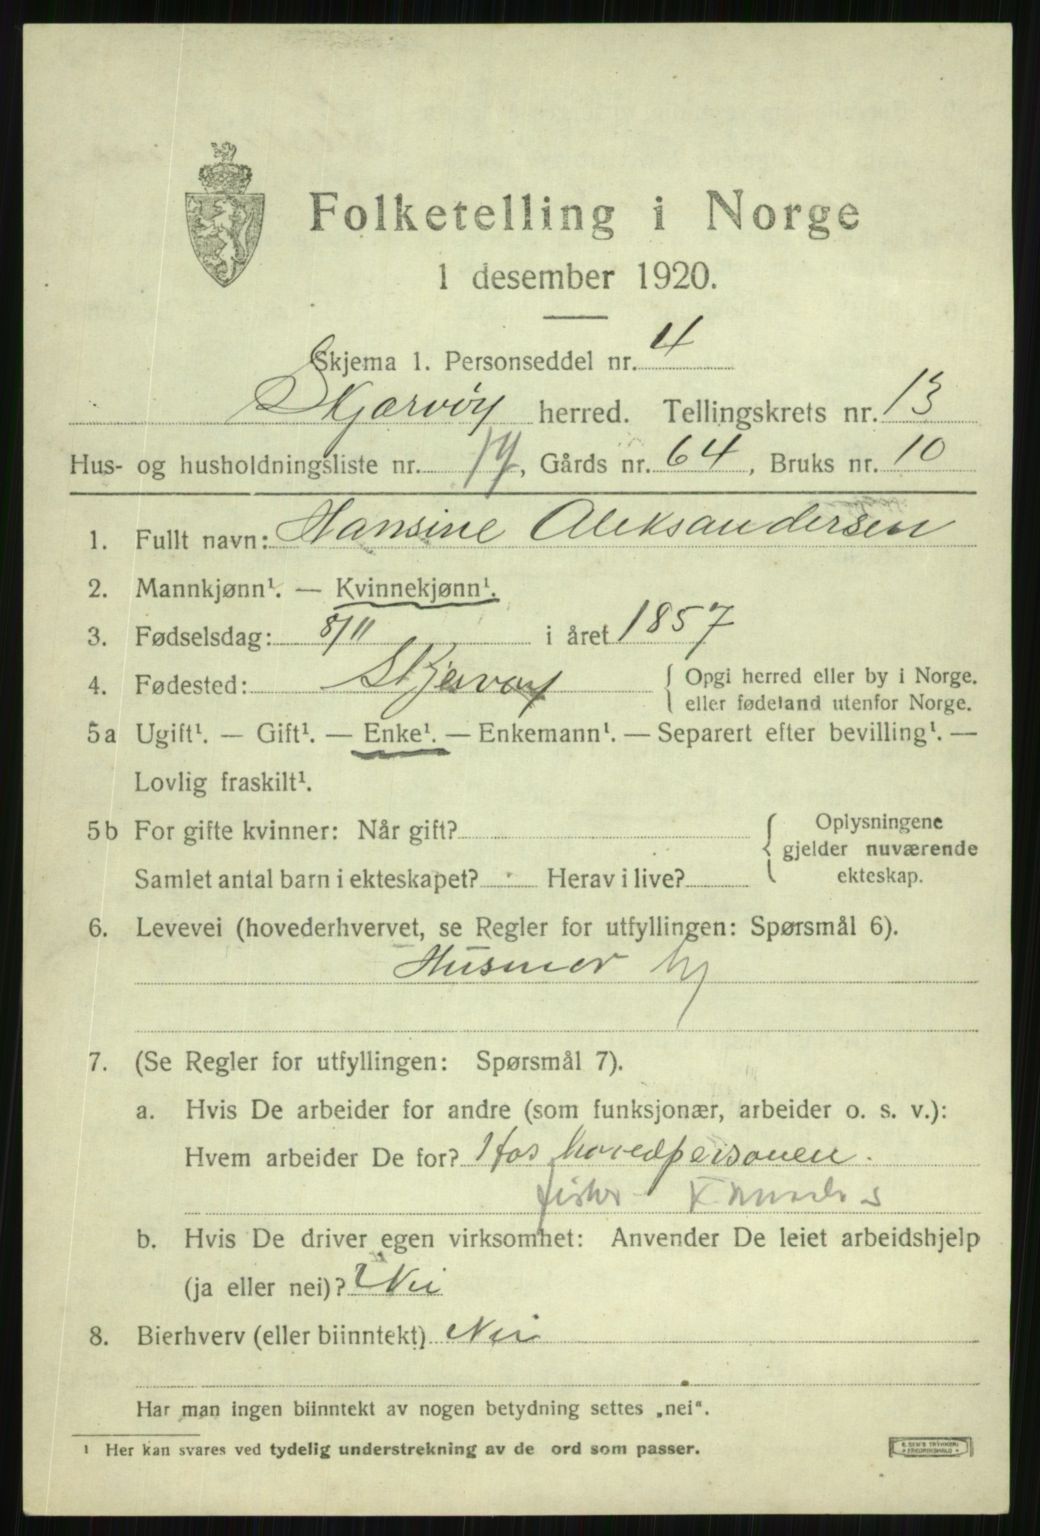 Folketelling i Norge
1 desember 1920.
Skjema 1. Personseddel nr. 4
Skjærvøy herred. Tellingskrets nr. 13
Hus- og husholdningsliste nr. 19, Gårds nr. 64, Bruks nr. 10
1. Fullt navn: Hansine Aleksandersen
2. Mannkjønn¹. — Kvinnekjønn¹.
3. Fødselsdag: 8/11 i året 1857
4. Fødested: Skjervøy { Opgi herred eller by i Norge.
eller fødeland utenfor Norge.
5a Ugift¹. — Gift¹. — Enke¹. — Enkemann¹. — Separert efter bevilling¹. —
Lovlig fraskilt¹.
5b For gifte kvinner: Når gift? { Oplysningene
gjelder nuværende
Samlet antal barn i ekteskapet? Herav i live? ekteskap.
6. Levevei (hovederhvervet, se Regler for utfyllingen: Spørsmål 6).
Husmor
7. (Se Regler for utfyllingen: Spørsmål 7).
a. Hvis De arbeider for andre (som funksjonær, arbeider o. s. v.):
Hvem arbeider De for? Hos hovedpersonen.
fisker
b. Hvis De driver egen virksomhet: Anvender De leiet arbeidshjelp
(ja eller nei)? Nei
8. Bierhverv (eller biinntekt) Nei
Har man ingen biinntekt av nogen betydning settes „nei".
¹ Her kan svares ved tydelig understrekning av de ord som passer.